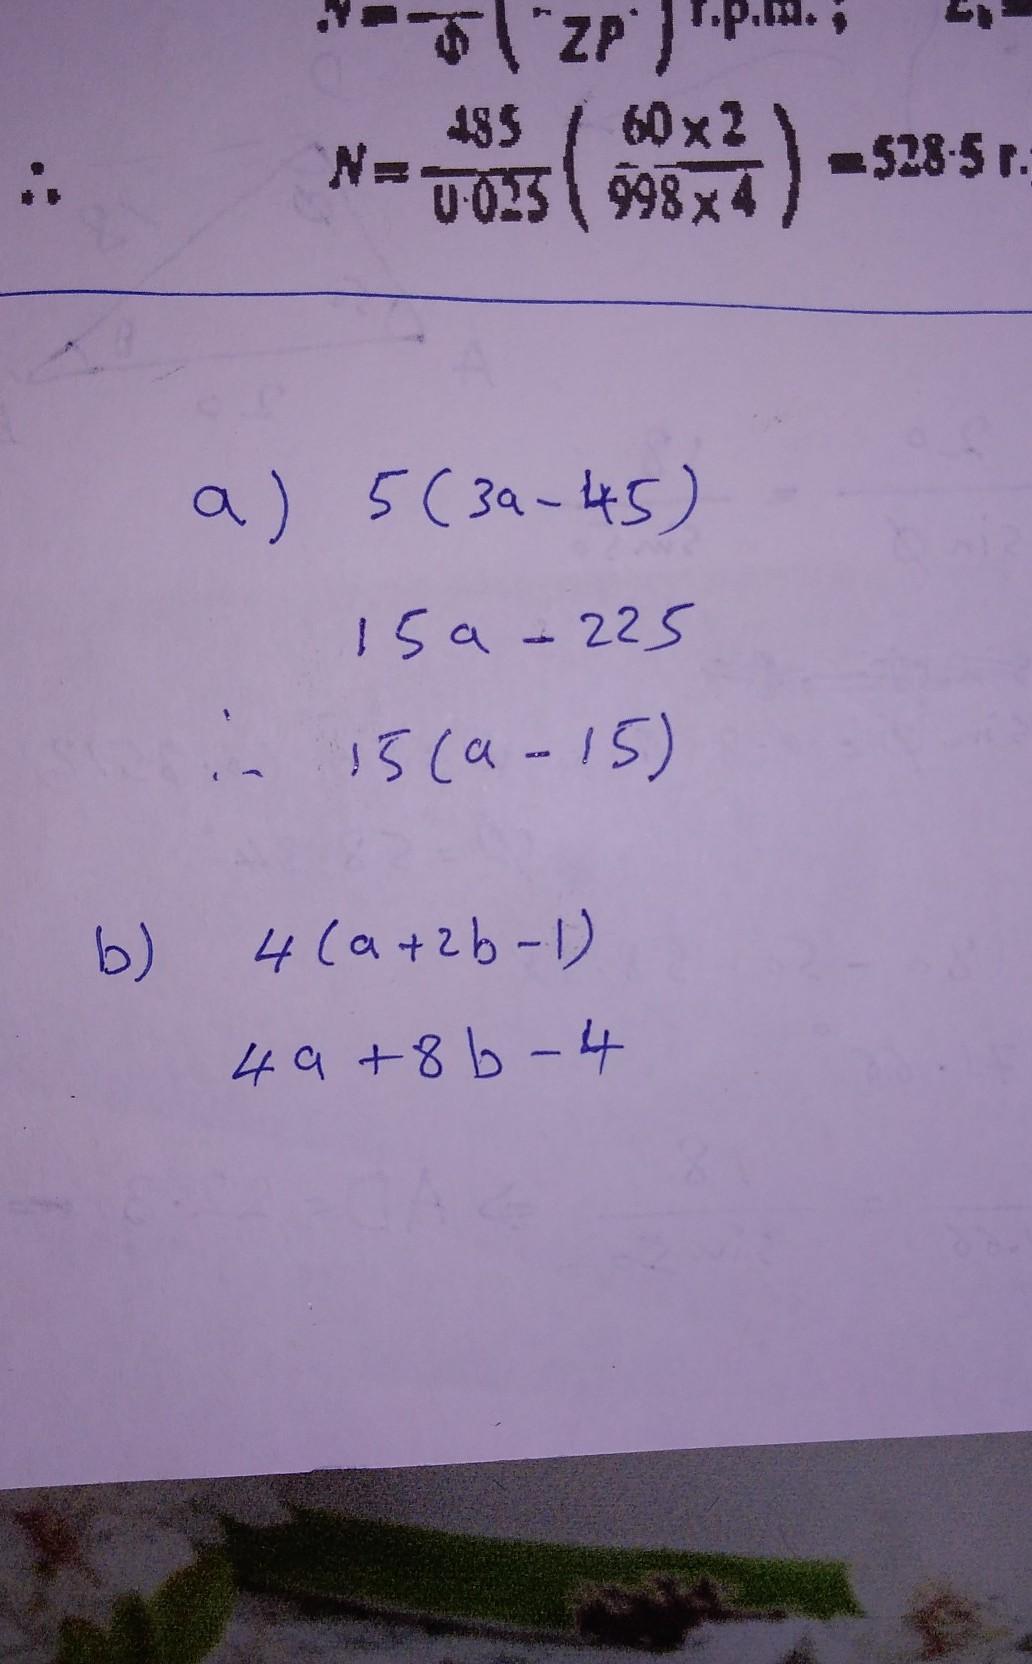 N = — ( ZP ) r.p.m. ;
∴ N = 485/0·025 ( 60 × 2 / 998 × 4 ) = 528·5 r.
a) 5(3a - 45)
15a - 225
∴ 15(a - 15)
b) 4(a + 2b - 1)
4a + 8b - 4